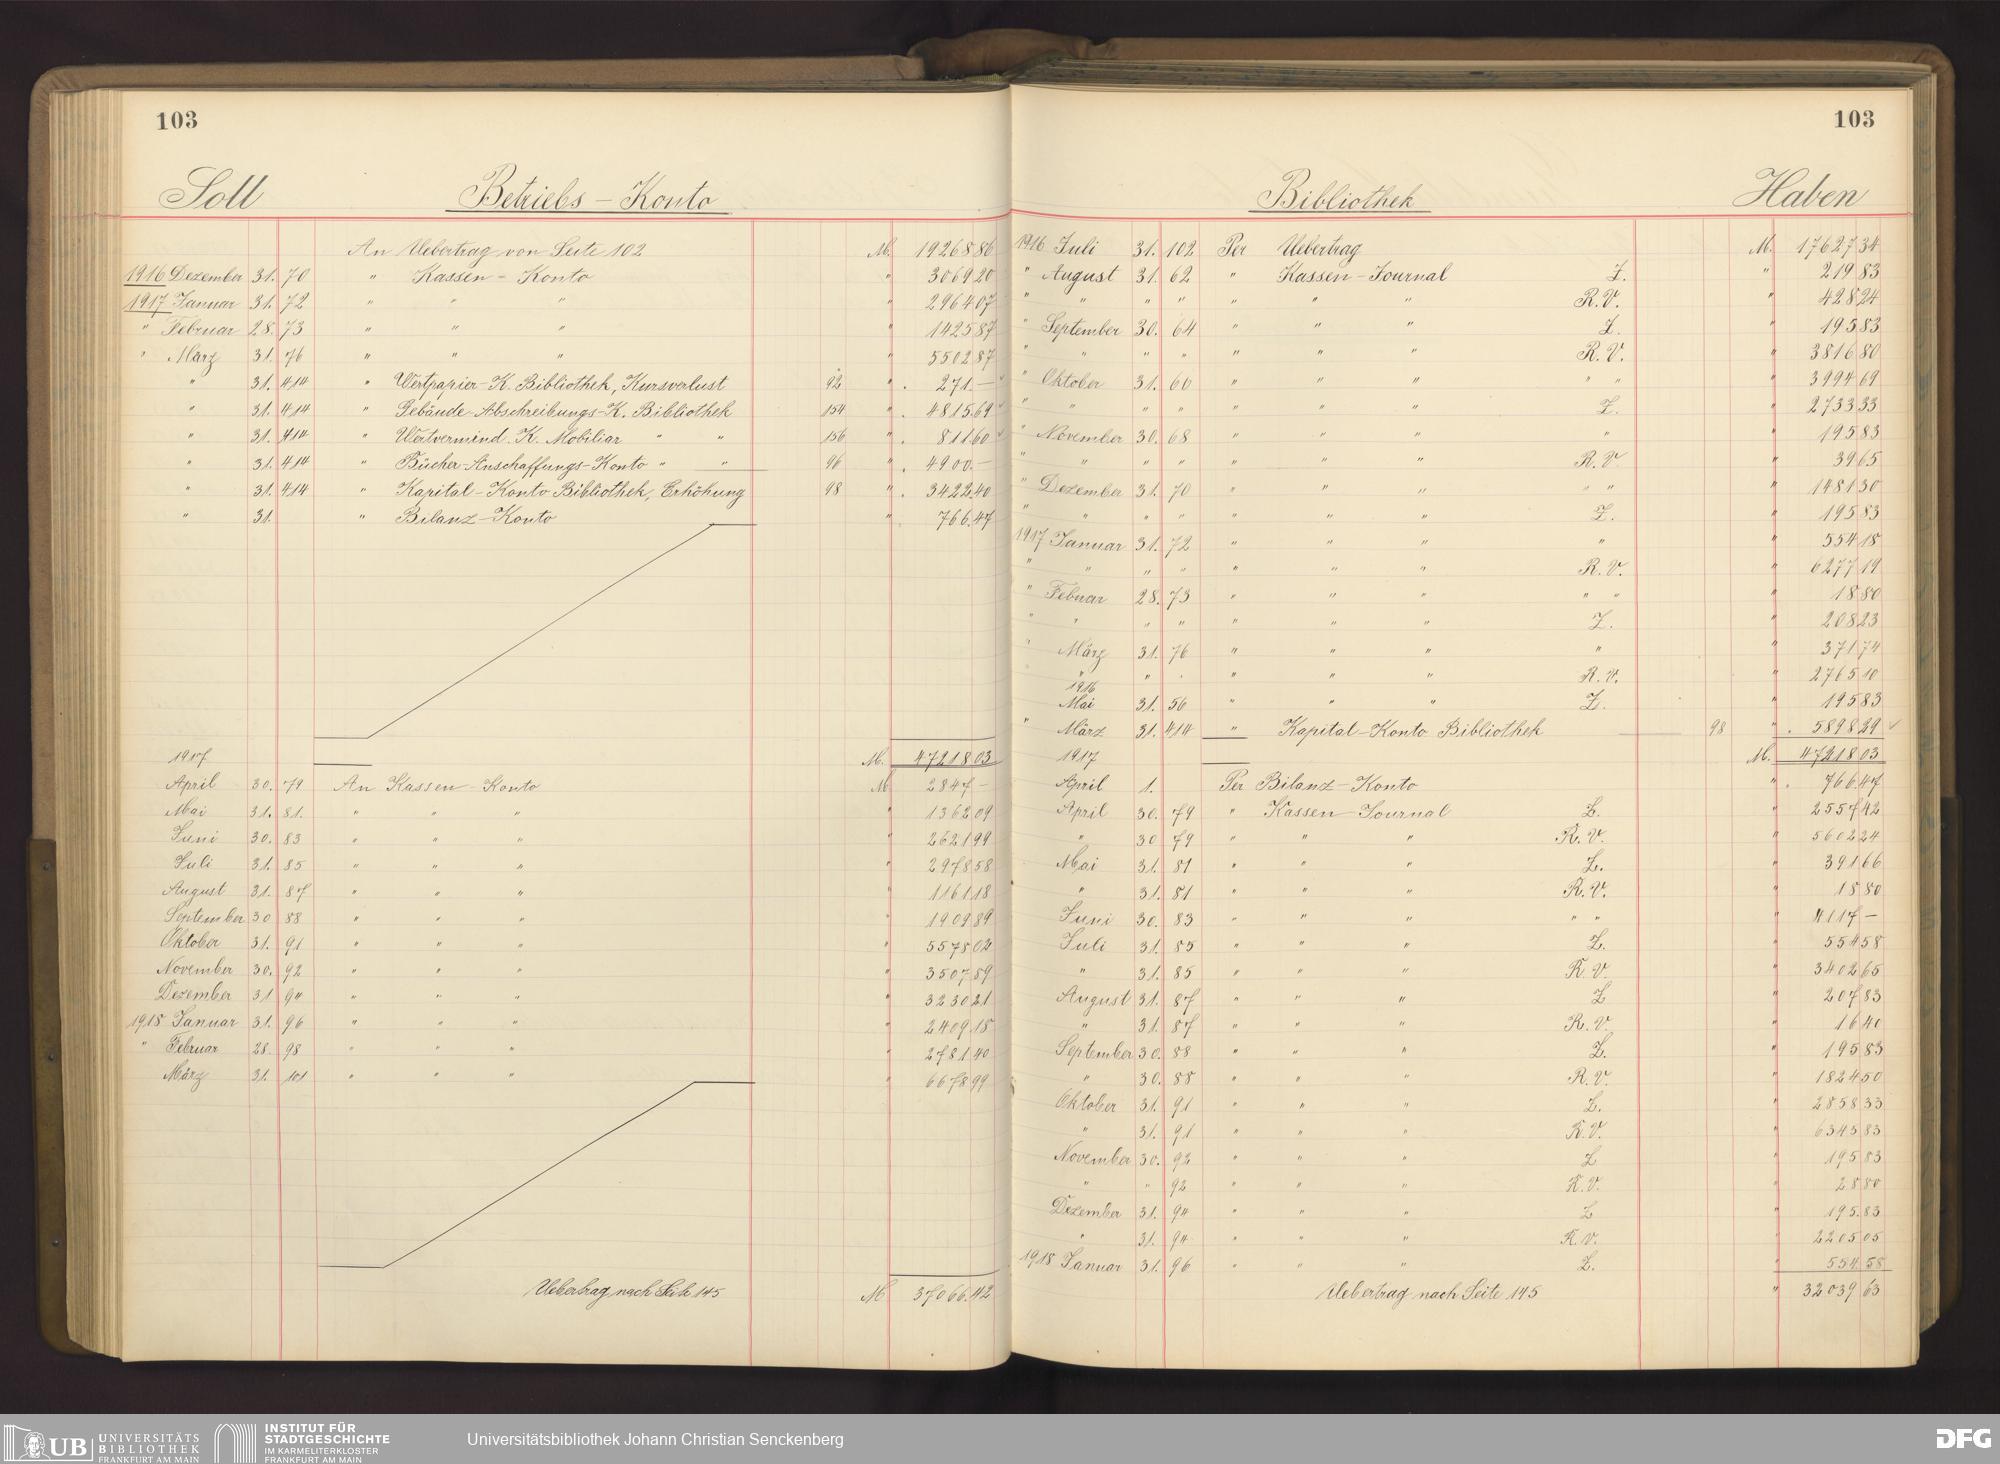 103
Soll Betriebs-Konto
An Uebertrag von Seite 102 M. 19268 86
1916 Dezember 31. 70 " Kassen-Konto " 3069 20
1917 Januar 31. 72 " " " " 2964 07
" Februar 28. 73 " " " " 1425 87
" März 31. 76 " " " " 5502 87
" 31. 414 " Wertpapier-K. Bibliothek, Kursverlust 92 " 271.—
" 31. 414 " Gebäude-Abschreibungs-K. Bibliothek 154 " 4815.69
" 31. 414 " Wertvermind. K. Mobiliar " " 156 " 811.60
" 31. 414 " Bücher-Anschaffungs-Konto " " 96 " 4900.—
" 31. 414 " Kapital-Konto Bibliothek, Erhöhung 98 " 3422.40
" 31. " Bilanz-Konto " 766.47
1917 M. 47218 03
April 30. 79 An Kassen-Konto M 2847 —
Mai 31. 81. " " " " 1362 09
Juni 30. 83 " " " " 2621 99
Juli 31. 85 " " " " 2978 58
August 31. 87 " " " " 1161 18
September 30 88 " " " " 1909 89
Oktober 31. 91 " " " " 5578 02
November 30. 92 " " " " 3507 59
Dezember 31 94 " " " " 3230 21
1918 Januar 31. 96 " " " " 2409 18
" Februar 28. 98 " " " " 2781 40
März 31. 101 " " " " 6678 99
Uebertrag nach Seite 145 M 37066.42
103
Bibliothek Haben
1916 Juli 31. 102 Per Uebertrag M. 17627 34
" August 31. 62 " Kassen-Journal Z. " 219 83
" " " " " " " R.V. " 428 24
" September 30. 64 " " " Z. " 195 83
" " " " " " " R.V. " 3816 80
" Oktober 31. 60 " " " " " " 3994 69
" " " " " " " Z. " 2733 33
" November 30. 68 " " " " " 195 83
" " " " " " " R.V. " 39 65
" Dezember 31. 70 " " " " " " 1481 30
" " " " " " " Z. " 195 83
1917 Januar 31. 72 " " " " " 554 18
" " " " " " " R.V. " 6277 19
" Februar 28. 73 " " " " " " 18 80
" " " " " " " Z. " 208 23
" März 31. 76 " " " " " 371 74
" " " " " " R.V. " 2765 10
1916
Mai 31. 56 " " " Z. " 195 83
" März 31. 414 " Kapital-Konto Bibliothek 98 " 5898 29
1917 M. 47218 03
April 1. Per Bilanz-Konto " 766.47
April 30. 79 " Kassen-Journal Z. " 2557 42
" 30 79 " " " R.V. " 5602 24
Mai 31. 81 " " " Z. " 391 66
" 31. 81 " " " R.V. " 18 80
Juni 30. 83 " " " " " " 4117 —
Juli 31. 85 " " " Z. " 554 58
" 31. 85 " " " R.V. " 3402 65
August 31. 87 " " " Z " 207 83
" 31. 87 " " " R.V. " 16 40
September 30. 88 " " " Z. " 195 83
" 30. 88 " " " R.V. " 1824 50
Oktober 31. 91 " " " Z. " 2858 33
" 31. 91 " " " R.V. " 6345 83
November 30. 92 " " " Z " 195 83
" " 92 " " " R.V. " 28 80
Dezember 31. 94 " " " Z " 195.83
" 31. 94 " " " R.V. " 2205 05
1918 Januar 31. 96 " " " Z. " 554 58
Uebertrag nach Seite 145 " 32039 63
UB UNIVERSITÄTS
BIBLIOTHEK
FRANKFURT AM MAIN
INSTITUT FÜR
STADTGESCHICHTE
IM KARMELITERKLOSTER
FRANKFURT AM MAIN
Universitätsbibliothek Johann Christian Senckenberg
DFG